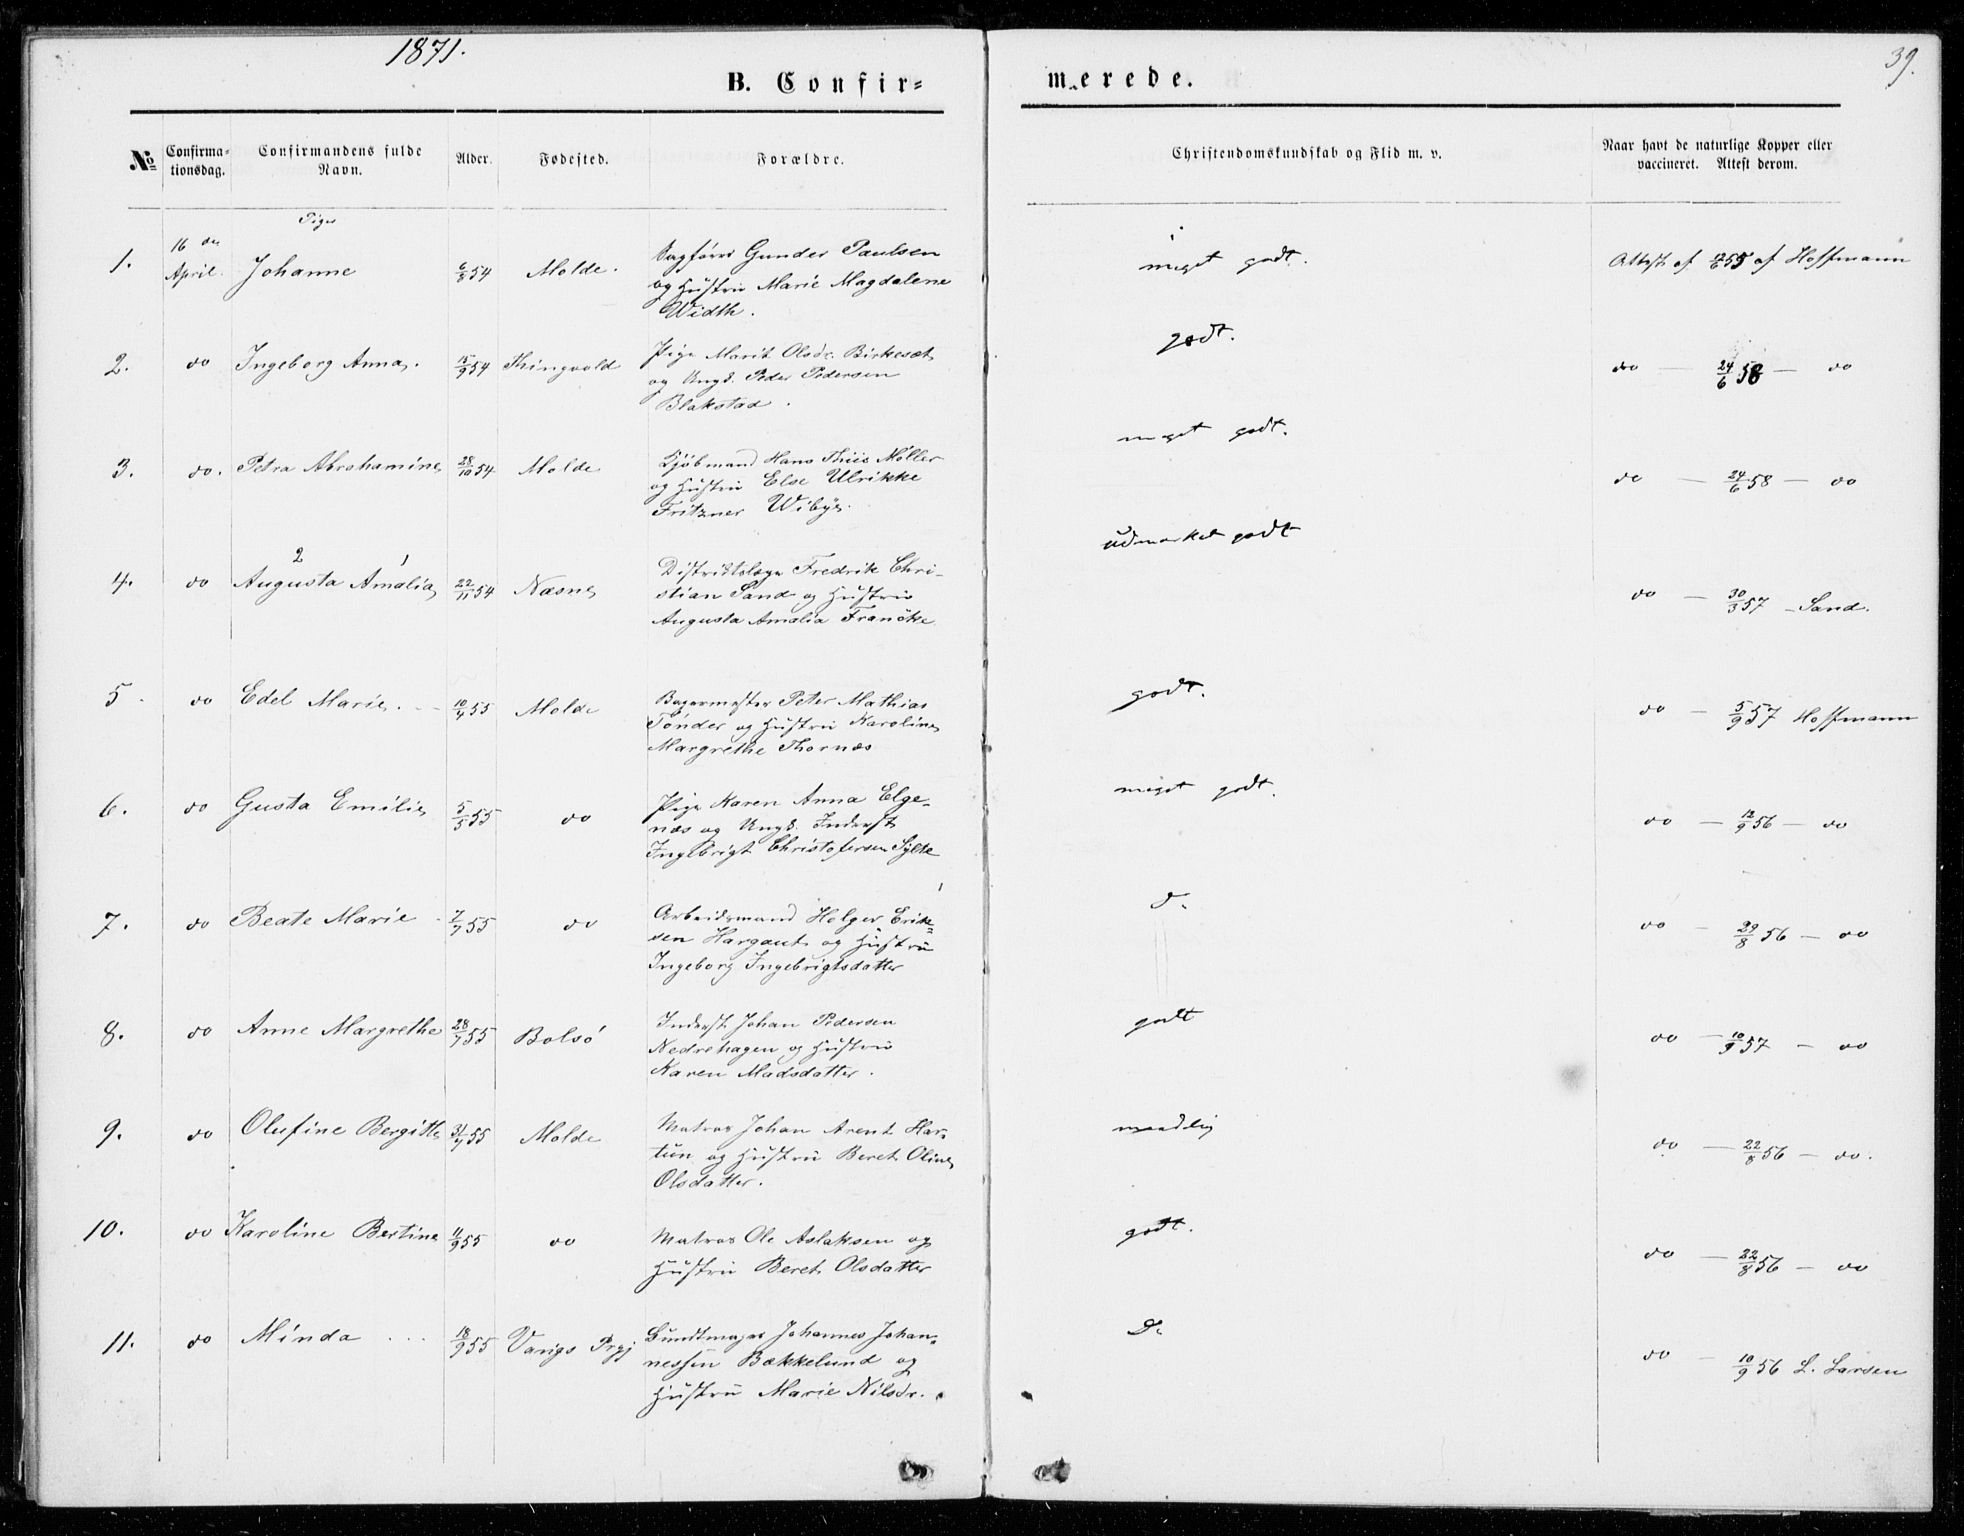 1871.
39.
B. Confir-
merede.
No
Confirma-
tionsdag.
Confirmandens fulde
Navn.
Alder.
Fødested.
Forældre.
Christendomskundskab og Flid m. v.
Naar havt de naturlige Kopper eller
vaccineret. Attest derom.
Piger
1.
16 de
April.
Johanne
6/8 54
Molde.
Sagfører Gunder Paulsen
og Hustru Marie Magdalene
Width.
meget godt.
Attest af 55 af Hoffmann
2.
do
Ingeborg Anna.
15/9 54
Thingvold
Pige Marit Olsdr. Birkesæt
og Ungk. Peder Pedersen
Blakstad.
godt.
do — 24/6 58 — do
3.
do.
Petra Abrahamine
28/10 54
Molde
Kjøbmand Hans Thiis Møller
og Hustru Else Ulrikke
Fritzner Wibye.
meget godt.
do — 24/6 58 — do
4.
do
2 1
Augusta Amalia
22/11 54
Næsne
Distriktslæge Fredrik Chri-
stian Sand og Hustru
Augusta Amalia Francke
udmærket godt
do — 30/3 57 — Sand.
5
do
Edel Marie.
10/4 55
Molde
Bagermester Peter Mathias
Tønder og Hustru Karoline
Margrethe Thornæs
godt.
do — 5/9 57 Hoffmann
6.
do
Gusta Emilie
5/5 55
do
Pige Karen Anna Elge-
næs og Ungk. Inderst
Ingebrigt Christofersen Sylte
meget godt.
do — 12/9 56 — do
7.
do
Beate Marie
7/7 55
do
Arbeidsmand Holger Erik-
sen Hargaut og Hustru
Ingeborg Ingebrigtsdatter
d.
do — 29/8 56 — do
8.
do
Anne Margrethe
28/7 55
Bolsø
Inderst Johan Pedersen
Nedrehagen og Hustru
Karen Madsdatter.
godt
do — 10/9 57 — do
9.
do
Olufine Bergitte
31/7 55
Molde
Matros Johan Arent Har-
tun og Hustru Beret Oline
Olsdatter.
maadelig
do — 22/8 56 — do.
10.
do
Karoline Bertine
11/9 55
do
Matros Ole Aslaksen og
Hustru Beret Olsdatter
godt.
do — 22/8 56 — do
11.
do
Minda
18/9 55
Vangs Prgj
Bundtmager Johannes Johan-
nessen Bækkelund og
Hustru Marie Nilsdr.
D.
do — 10/9 56 L. Larsen